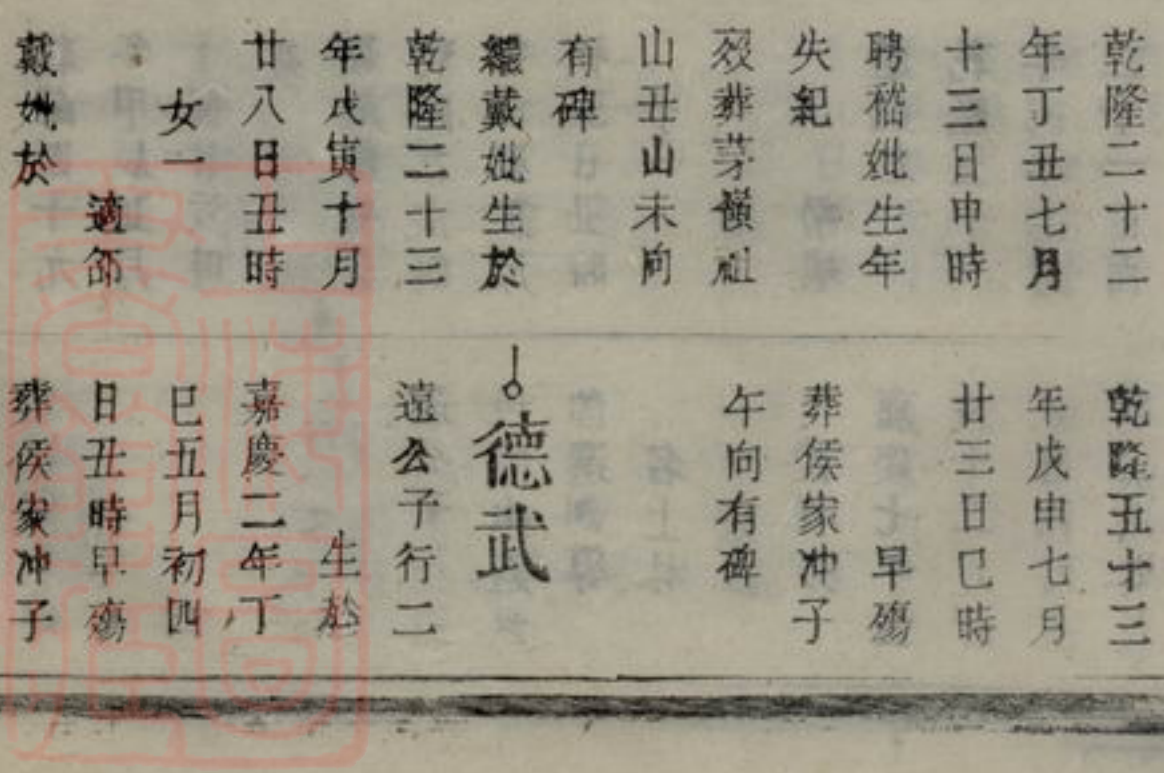 乾隆二十二
年丁丑七月
十三日申時
聘嵇妣生年
失紀
歿葬芽嶺祖
山丑山未向
有碑
繼戴妣生於
乾隆二十三
年戊寅十月
廿八日丑時
女一
適節
戴妣於
乾隆五十三
年戊申七月
廿三日巳時
早殤
葬侯家冲子
午向有碑
德武
遠公子行二
生於
嘉慶二年丁
巳五月初四
日丑時早殤
葬侯家冲子